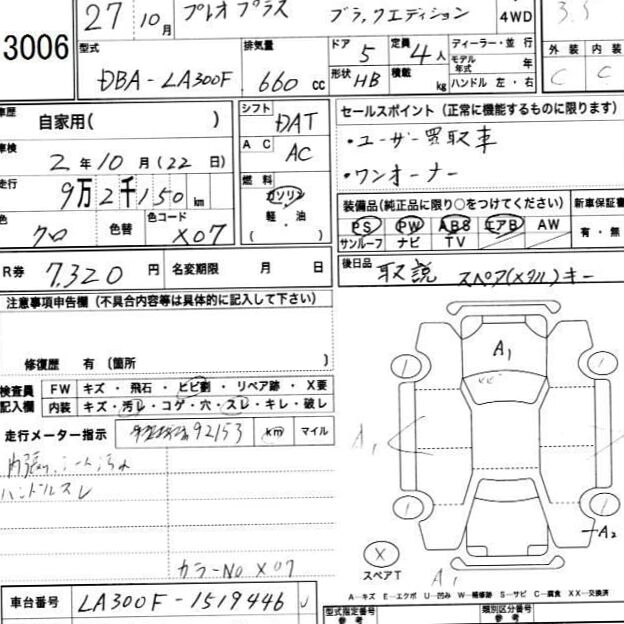 27 10月 プレオプラス ブラックエディション 4WD 3.5
3006
型式 DBA-LA300F
排気量 660 cc
ドア 5 定員 4人
形状 HB 積載 kg
ディーラー・並行
モデル年式 年
ハンドル 左・右
外装 内装
C C
車歴 自家用( )
シフト DAT
セールスポイント (正常に機能するものに限ります)
・ユーザー買取車
・ワンオーナー
車検 2年10月(22日)
AC AC
走行 9万2千150 km
燃料 ガソリン 軽・油 ( )
装備品(純正品に限り○をつけてください) 新車保証書
PS PW ABS エアB AW 有・無
サンルーフ ナビ TV
色 クロ 色替 色コード X07
R券 7,320円 名変期限 月 日
後日品 取説 スペア(メタル)キー
注意事項申告欄 (不具合内容等は具体的に記入して下さい)
修復歴 有 (箇所 )
検査員記入欄
FW キズ・飛石・ヒビ割・リペア跡・X要
内装 キズ・汚レ・コゲ・穴・スレ・キレ・破レ
走行メーター指示 92153 km マイル
内張り、シート汚れ
ハンドルスレ
カラーNo X07
車台番号 LA300F-1519446
A1
A1
A2
A1
X スペアT
A―キズ E―エクボ U―凹み W―補修跡 S―サビ C―腐食 XX―交換済
型式指定番号 参考 類別区分番号 参考